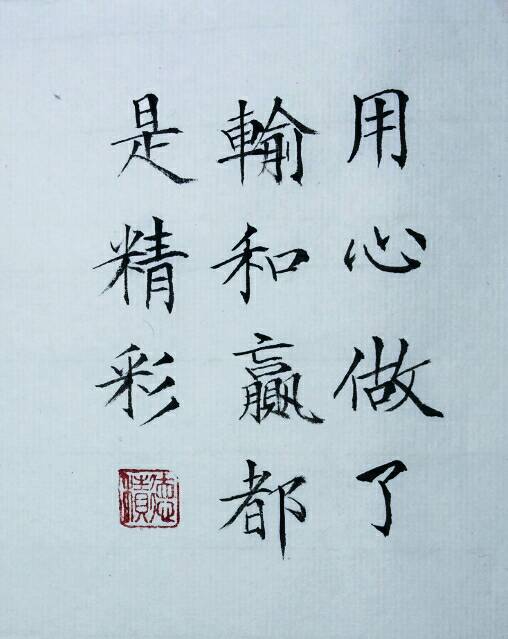 用心做了
輸和贏都
是精彩